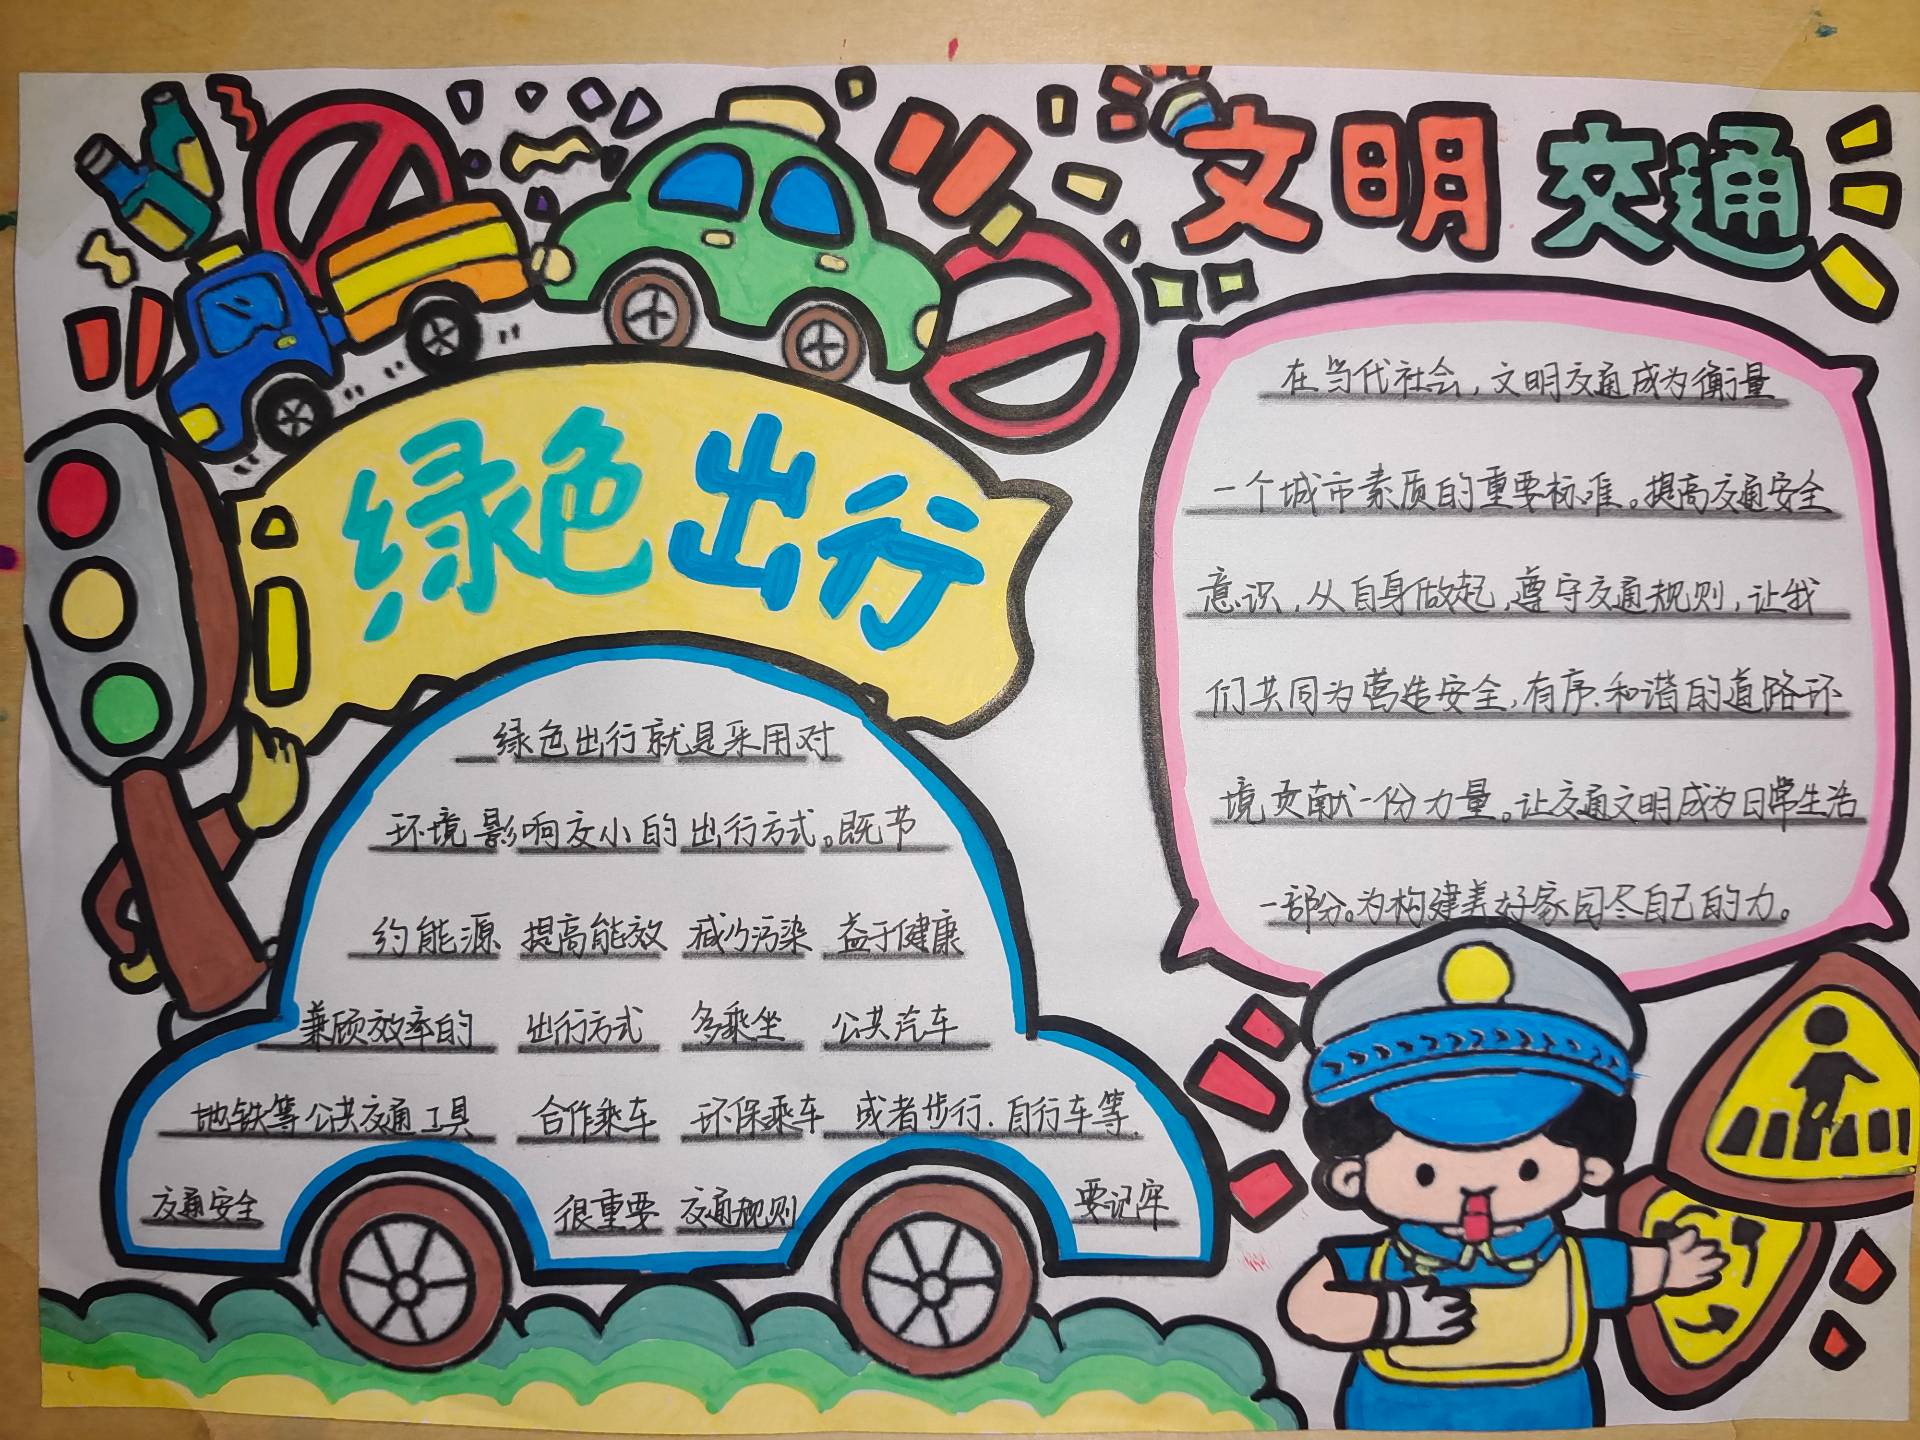 文明交通
绿色出行
在当代社会,文明交通成为衡量
一个城市素质的重要标准。提高交通安全
意识,从自身做起,遵守交通规则,让我
们共同为营造安全,有序、和谐的道路环
境贡献一份力量。让交通文明成为日常生活
一部分。为构建美好家园尽自己的力。
绿色出行就是采用对
环境影响较小的出行方式。既节
约能源 提高能效 减少污染 益于健康
兼顾效率的 出行方式 多乘坐 公共汽车
地铁等公共交通工具 合作乘车 环保乘车 或者步行、自行车等、
交通安全 很重要 交通规则 要记牢